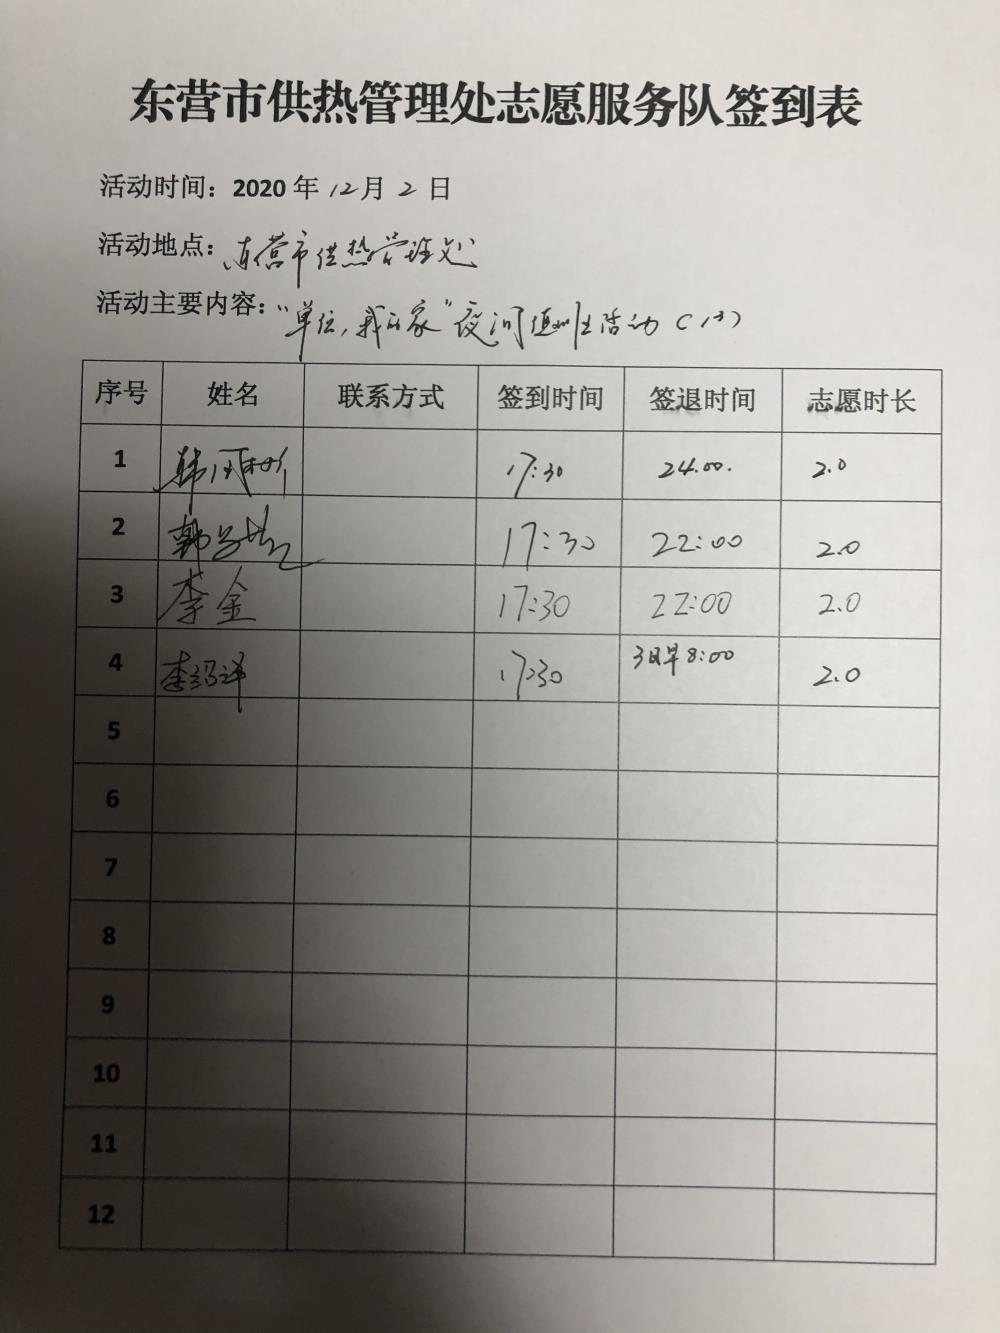 东营市供热管理处志愿服务队签到表
活动时间：2020 年 12 月 2 日
活动地点：东营市供热管理处
活动主要内容：“单位,我的家”夜间值班生活动（13）
序号 姓名 联系方式 签到时间 签退时间 志愿时长
1 韩 17:30 24.00. 2.0
2 郭 17:30 22:00 2.0
3 李金 17:30 22:00 2.0
4 李绍洋 17:30 3日早8:00 2.0
5
6
7
8
9
10
11
12